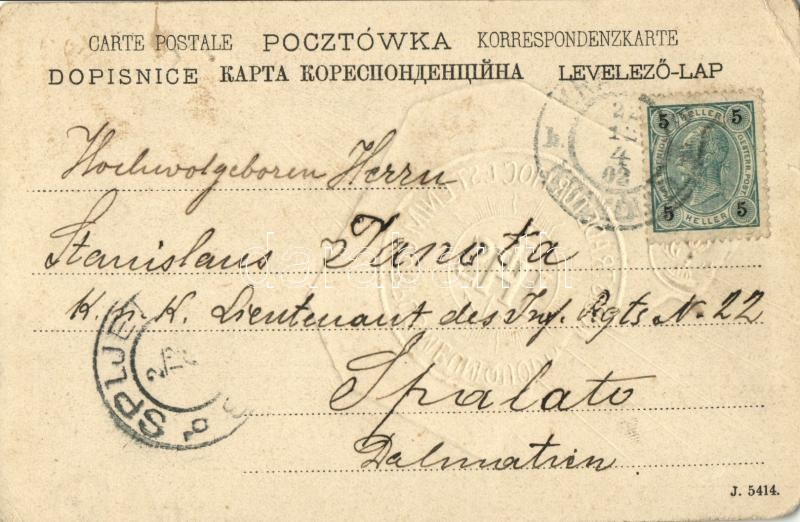 CARTE POSTALE POCZTÓWKA KORRESPONDENZKARTE
DOPISNICE КАРТА КОРЕСПОНДЕНЦІЙНА LEVELEZŐ-LAP
5 5
HELLER
5 HELLER 5
21
4
02
Hochwolgeboren Herrn
Stanislaus Janota
K. u. K. Lieutenant des Inf. Rgts N. 22
Spalato
Dalmatien
SPLJE
darabanth
J. 5414.